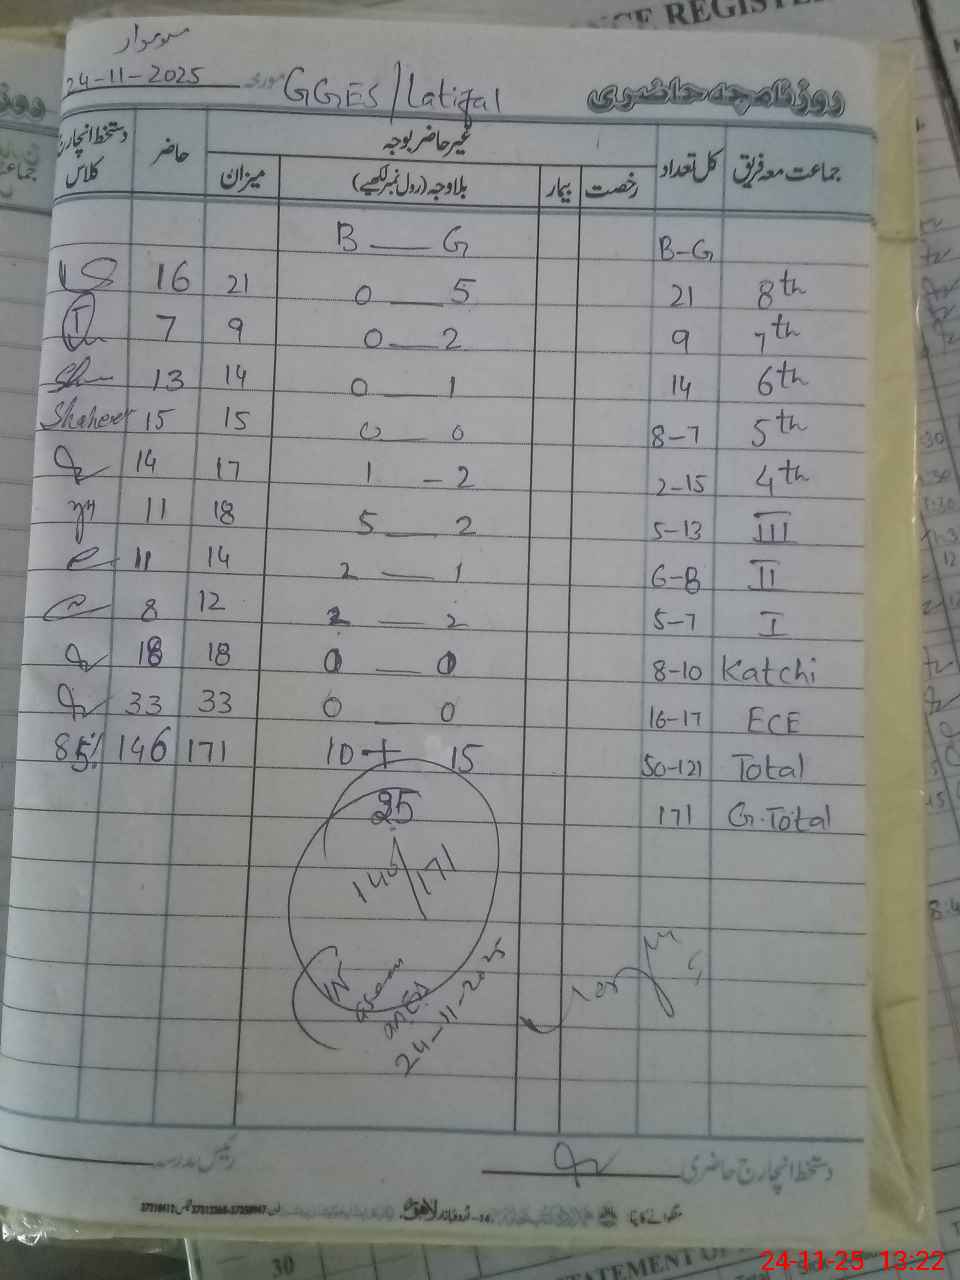 NCE REGISTER
سوموار
24-11-2025 مورخہ GGES/Latifal روزنامچہ حاضری
جماعت معہ فریق کل تعداد غیر حاضر بوجہ حاضر دستخط انچارج کلاس
رخصت بیمار بلاوجہ (رول نمبر لکھیے) میزان
B — G B-G
16 21 0 — 5 21 8th
7 9 0 — 2 9 7th
13 14 0 — 1 14 6th
Shaheer 15 15 0 — 0 8-7 5th
14 17 1 - 2 2-15 4th
11 18 5 — 2 5-13 III
11 14 2 — 1 6-8 II
8 12 2 — 2 5-7 I
18 18 0 — 0 8-10 Katchi
33 33 0 — 0 16-17 ECE
85% 146 171 10 + 15 50-121 Total
25 171 G.Total
146/171
24-11-2025
رئیس مدرسہ دستخط انچارج حاضری
30
STATEMENT OF
24-11-25 13:22